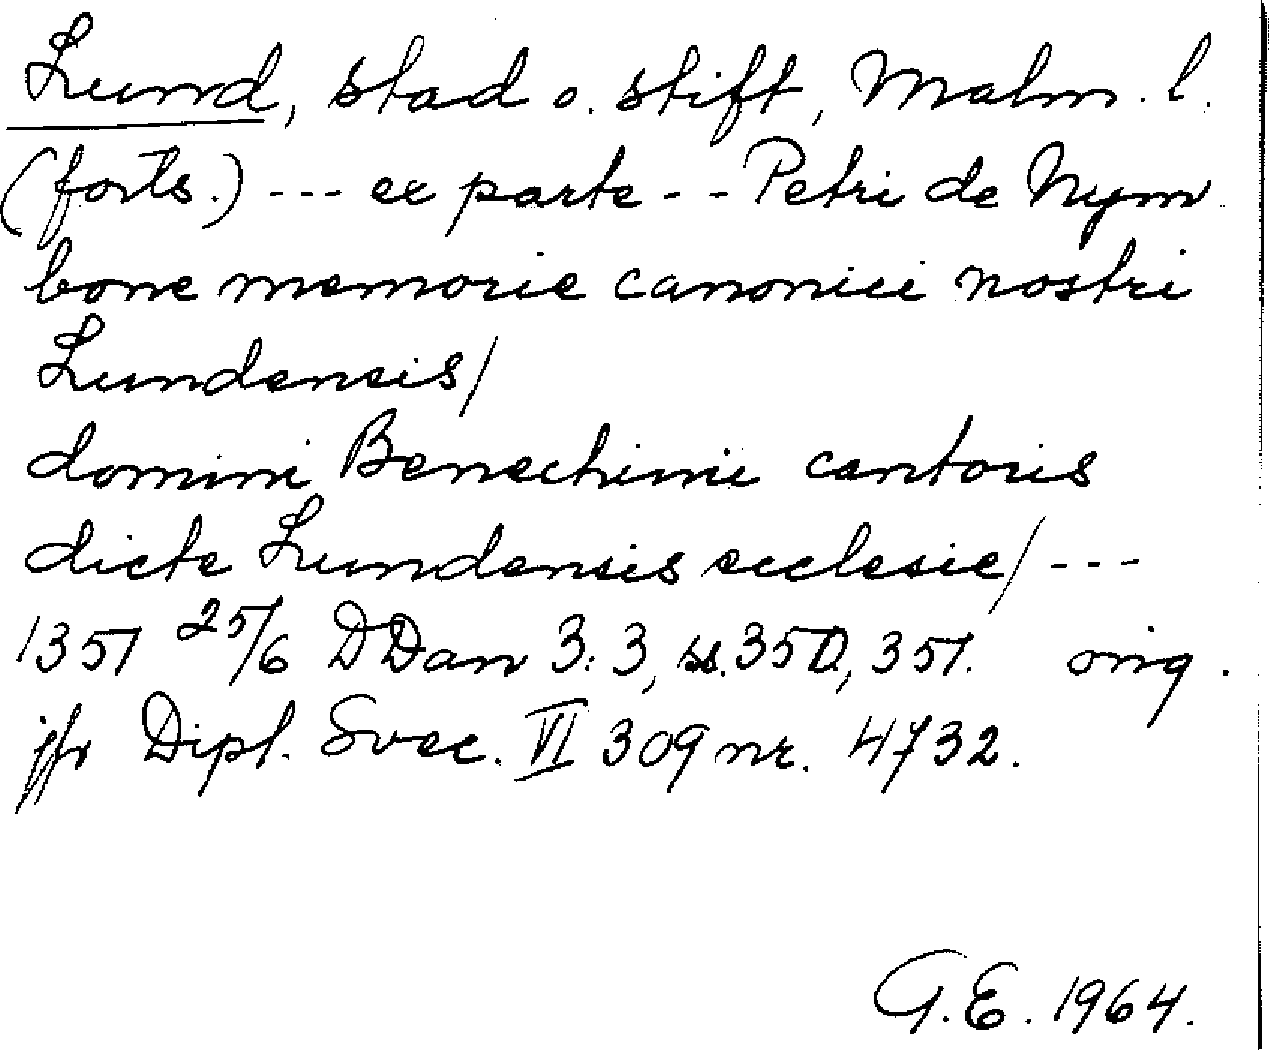 Lund, stad o. stift, Malm. l.
(forts.) --- ex parte -- Petri de Nym
bone memorie canonici nostri
Lundensis/
domini Benechini cantoris
dicte Lundensis ecclesie/ ---
1351 25/6 DDan 3:3, ss. 350, 351. orig.
jfr Dipl. Svec. VI 309 nr. 4732.
G.E. 1964.